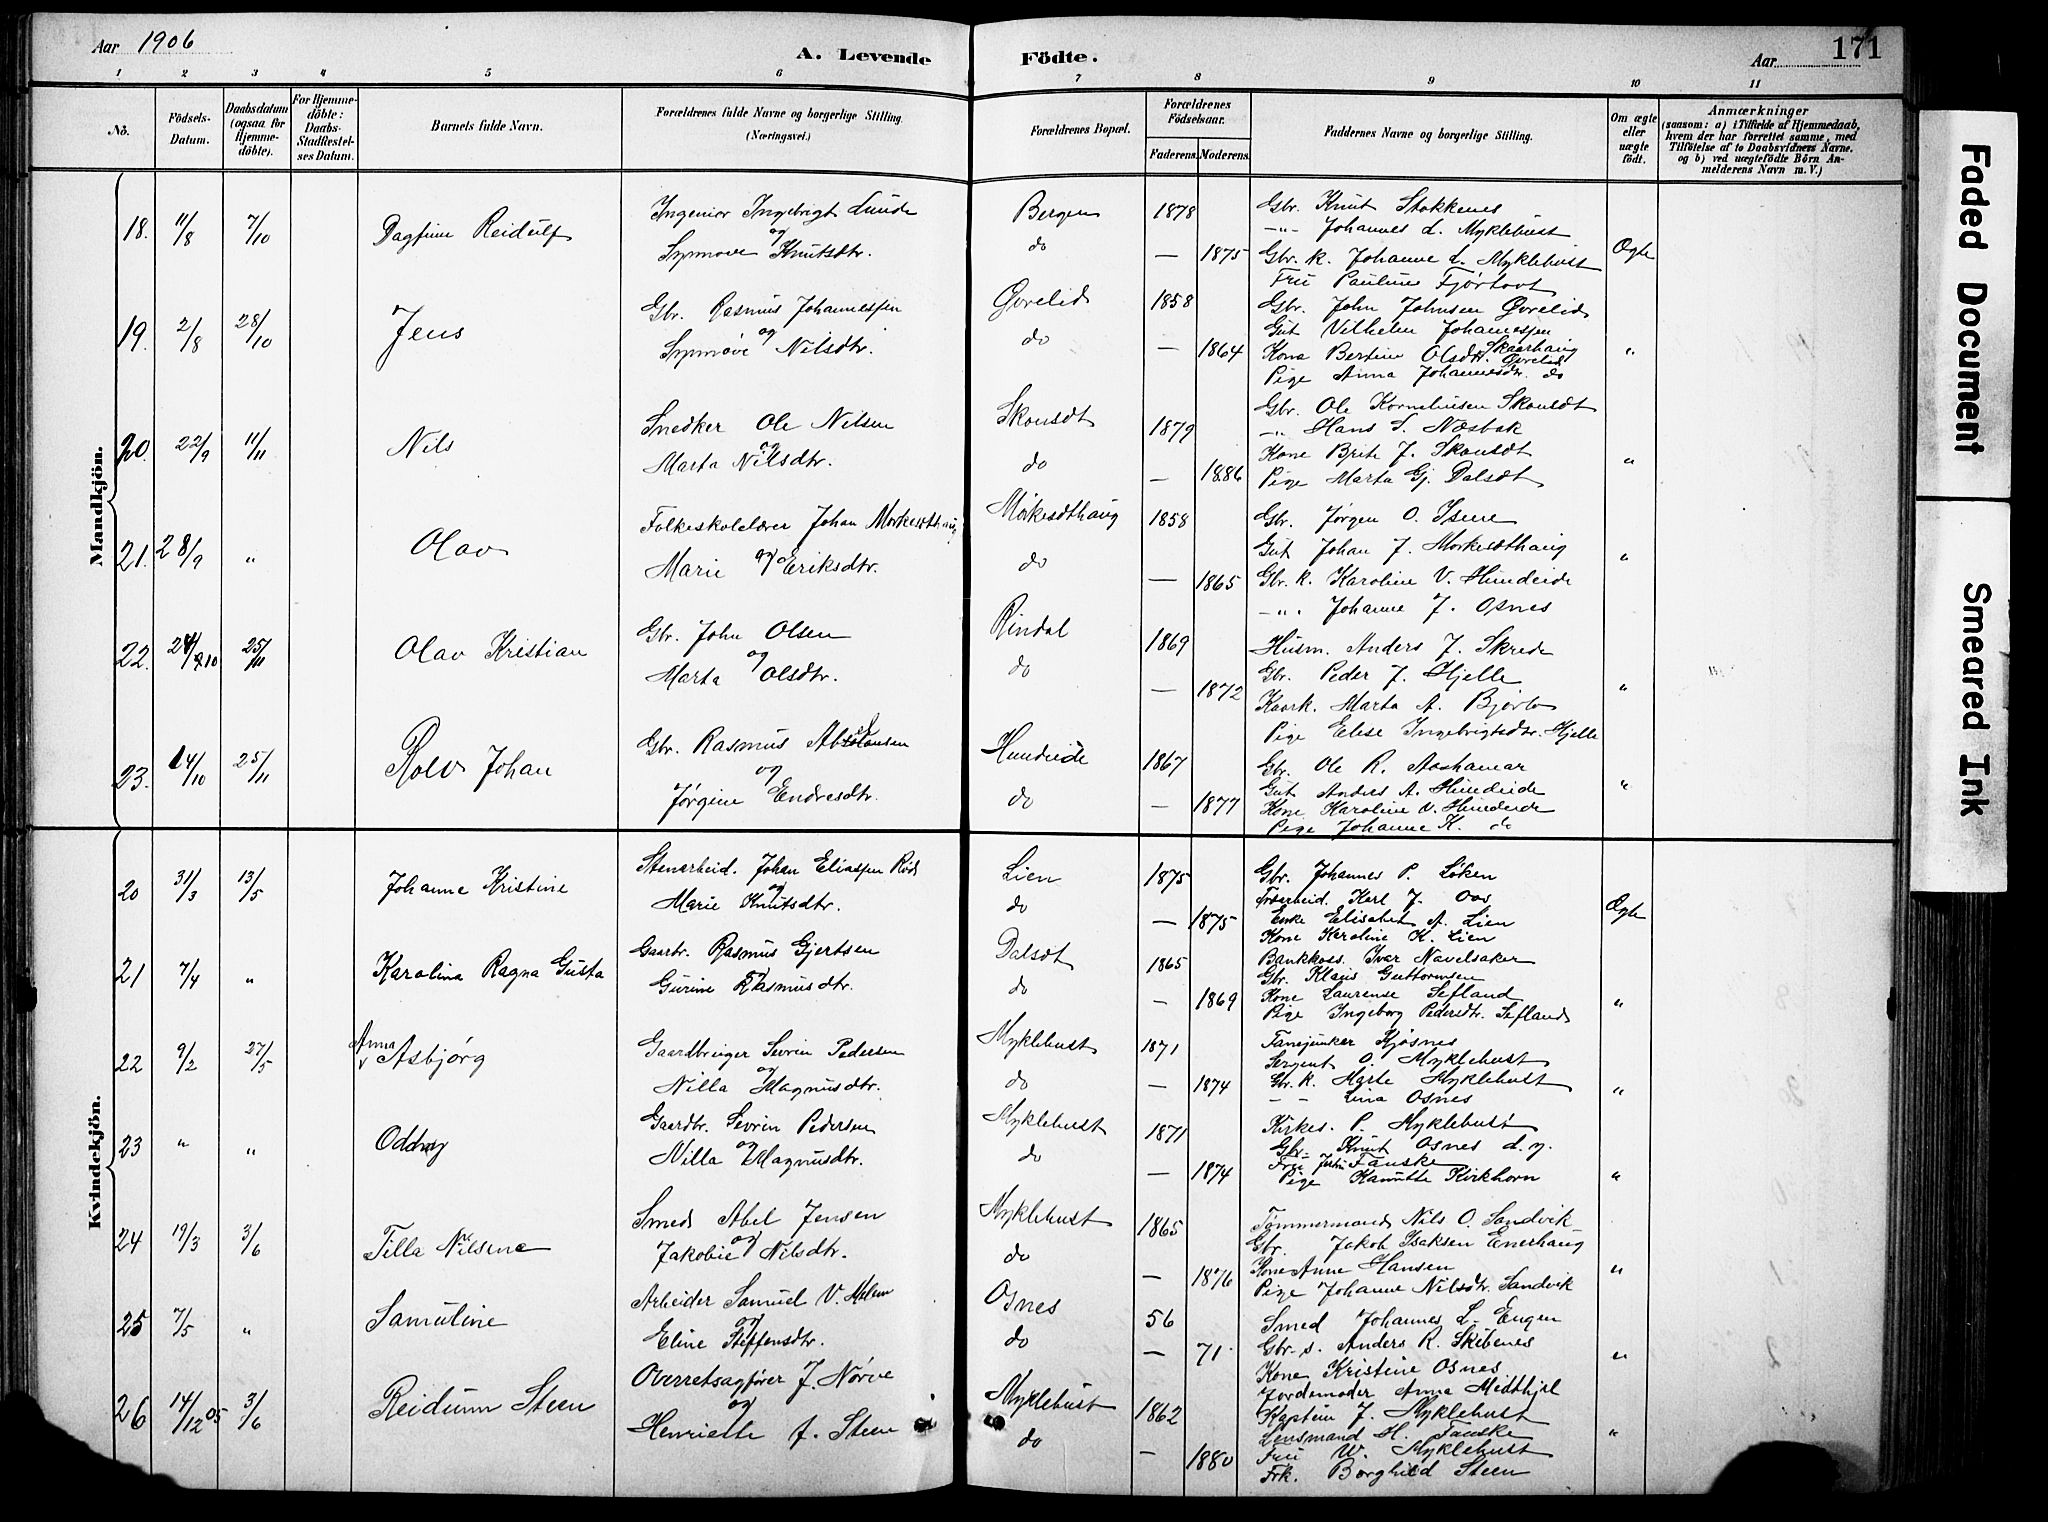 Aar 1906
A. Levende Födte.
Aar 171
1 2 3 4 5 6 7 8 9 10 11
No.
Födsels-Datum.
Daabsdatum (ogsaa for Hjemme-döbte).
For Hjemme-döbte: Daabs-Stadfestel-ses Datum.
Barnets fulde Navn.
Forældrenes fulde Navne og borgerlige Stilling.
(Næringsvei.)
Forældrenes Bopæl.
Forældrenes Födselsaar.
Faderens. Moderens.
Faddernes Navne og borgerlige Stilling.
Om ægte eller uægte födt.
Anmærkninger
(saasom: a) i Tilfælde af Hjemmedaab, hvem der har forrettet samme, med Tilföielse af to Daabsvidners Navne. og b) ved uægtefödte Börn An-melderens Navn m. V.)
Mandkjön.
18. 11/8 7/10 Dagfinn Reidulf
Ingeniør Ingebrigt Lunde
og
Synnøve Knutsdtr.
Bergen 1878
do — 1875
Gbr. Knut Stokkenes
-"- Johannes L. Myklebust
Gbr. k. Johanne L. Myklebust
Fru Pauline Fjørtoft
Ægte
19. 2/8 28/10 Jens
Gbr. Rasmus Johannessen
og
Synnøve Nilsdtr.
Øvrelid 1858
do — 1864
Gbr. John Johnsen Øvrelid
Gut Vilhelm Johannessen
Skaarhaug
Kona Bertine Olsdtr. Øvrelid
Pige Anna Johannesdr. do
"
20. 22/9 11/11 Nils
Snedker Ole Nilsen
og
Marta Nilsdtr.
Skonsdt 1879
do — 1886
Gbr. Ole Korneliusen Skonsdt
-"- Hans S. Næsbak
Kone Brite J. Skonsdt
Pige Marta Gj. Dalsdt
"
21. 28/9 " Olav
Folkeskolelærer Johan Morkesdthaug
og
Marie Eriksdtr.
Mørkesdthaug 1858
do — 1865
Gbr. Jørgen O. Isene
Gut Johan J. Morkesdthaug
Gbr. k. Karoline V. Hundeide
-"- Johanne J. Osnes
"
22. 24/10 25/11 Olav Kristian
Gbr. John Olsen
og
Marta Olsdtr.
Rindal 1869
do — 1872
Husm. Anders J. Skrede
Gbr. Peder J. Hjelle
Kaark. Marta A. Bjørlo
Pige Elise Ingebrigtsdtr. Hjelle
"
23. 14/10 25/11 Rolv Johan
Gbr. Rasmus Absalonsen
og
Jørgine Endresdtr.
Hundeide 1867
do — 1877
Gbr. Ole R. Aashamar
Gut Anders A. Hundeide
Kone Karoline V. Hundeide
Pige Johanne K. do
"
Kvindekjön.
20 31/3 13/5 Johanne Kristine
Stenarbeid. Johan Eliassen Röd
og
Marie Knutsdtr.
Lien 1875
do — 1875
Gbr. Johannes P. Løken
Træarbeid. Karl J. Aas
Enke Elisabet A. Lien
Kone Karoline K. Lien
Ægte
21 7/4 " Karolina Ragna Gusta
Gaardbr. Rasmus Gjertsen
og
Gurine Rasmusdtr.
Dalsdt 1865
do — 1869
Bankkass. Ivar Navelsaker
Gbr. Klaus Guttormsen
Kone Laurense Sefland
Pige Ingeborg Pedersdtr. Sefland
"
22 9/2 27/5 Anna Asbjørg
Gaardbruger Sevrin Pedersen
og
Nilla Magnusdtr.
Myklebust 1871
do — 1874
Fanejunker Kjøsnes
Sergent O. Myklebust
Gbr. k. Marte Myklebust
- - Lina Osnes
"
23 " " Oddny
Gaardbr. Sevrin Pedersen
og
Nilla Magnusdtr.
Myklebust 1871
do — 1874
Kirkes. P. Myklebust
Gbr. Knut Osnes d. y.
Frue Fauske
Pige Kanutte Kirkhorn
"
24 19/3 3/6 Tilla Nilsine
Smed Abel Jensen
og
Jakobie Nilsdtr.
Myklebust 1865
do — 1876
Tømmermand Nils O. Sandvik
Gbr. Jakob Isaksen Enerhaug
Kone Anne Hansen
Pige Johanne Nilsdtr. Sandvik
"
25 7/5 " Samuline
Arbeider Samuel V. Melem
og
Eline Steffensdtr.
Osnes 56
do — 71
Smed Johannes L. Engen
Gbr. s. Anders R. Skibenes
Kone Kristine Osnes
Jordemoder Anna Midthjel
"
26 14/12 05 3/6 Reidunn Steen
Overretsagfører J. Nørve
og
Henriette f. Steen
Myklebust 1862
do — 1880
Kaptein J. Myklebust
Lensmand H. Fauske
Fru W. Myklebust
Frk. Borghild Steen
"
Faded Document
Smeared Ink